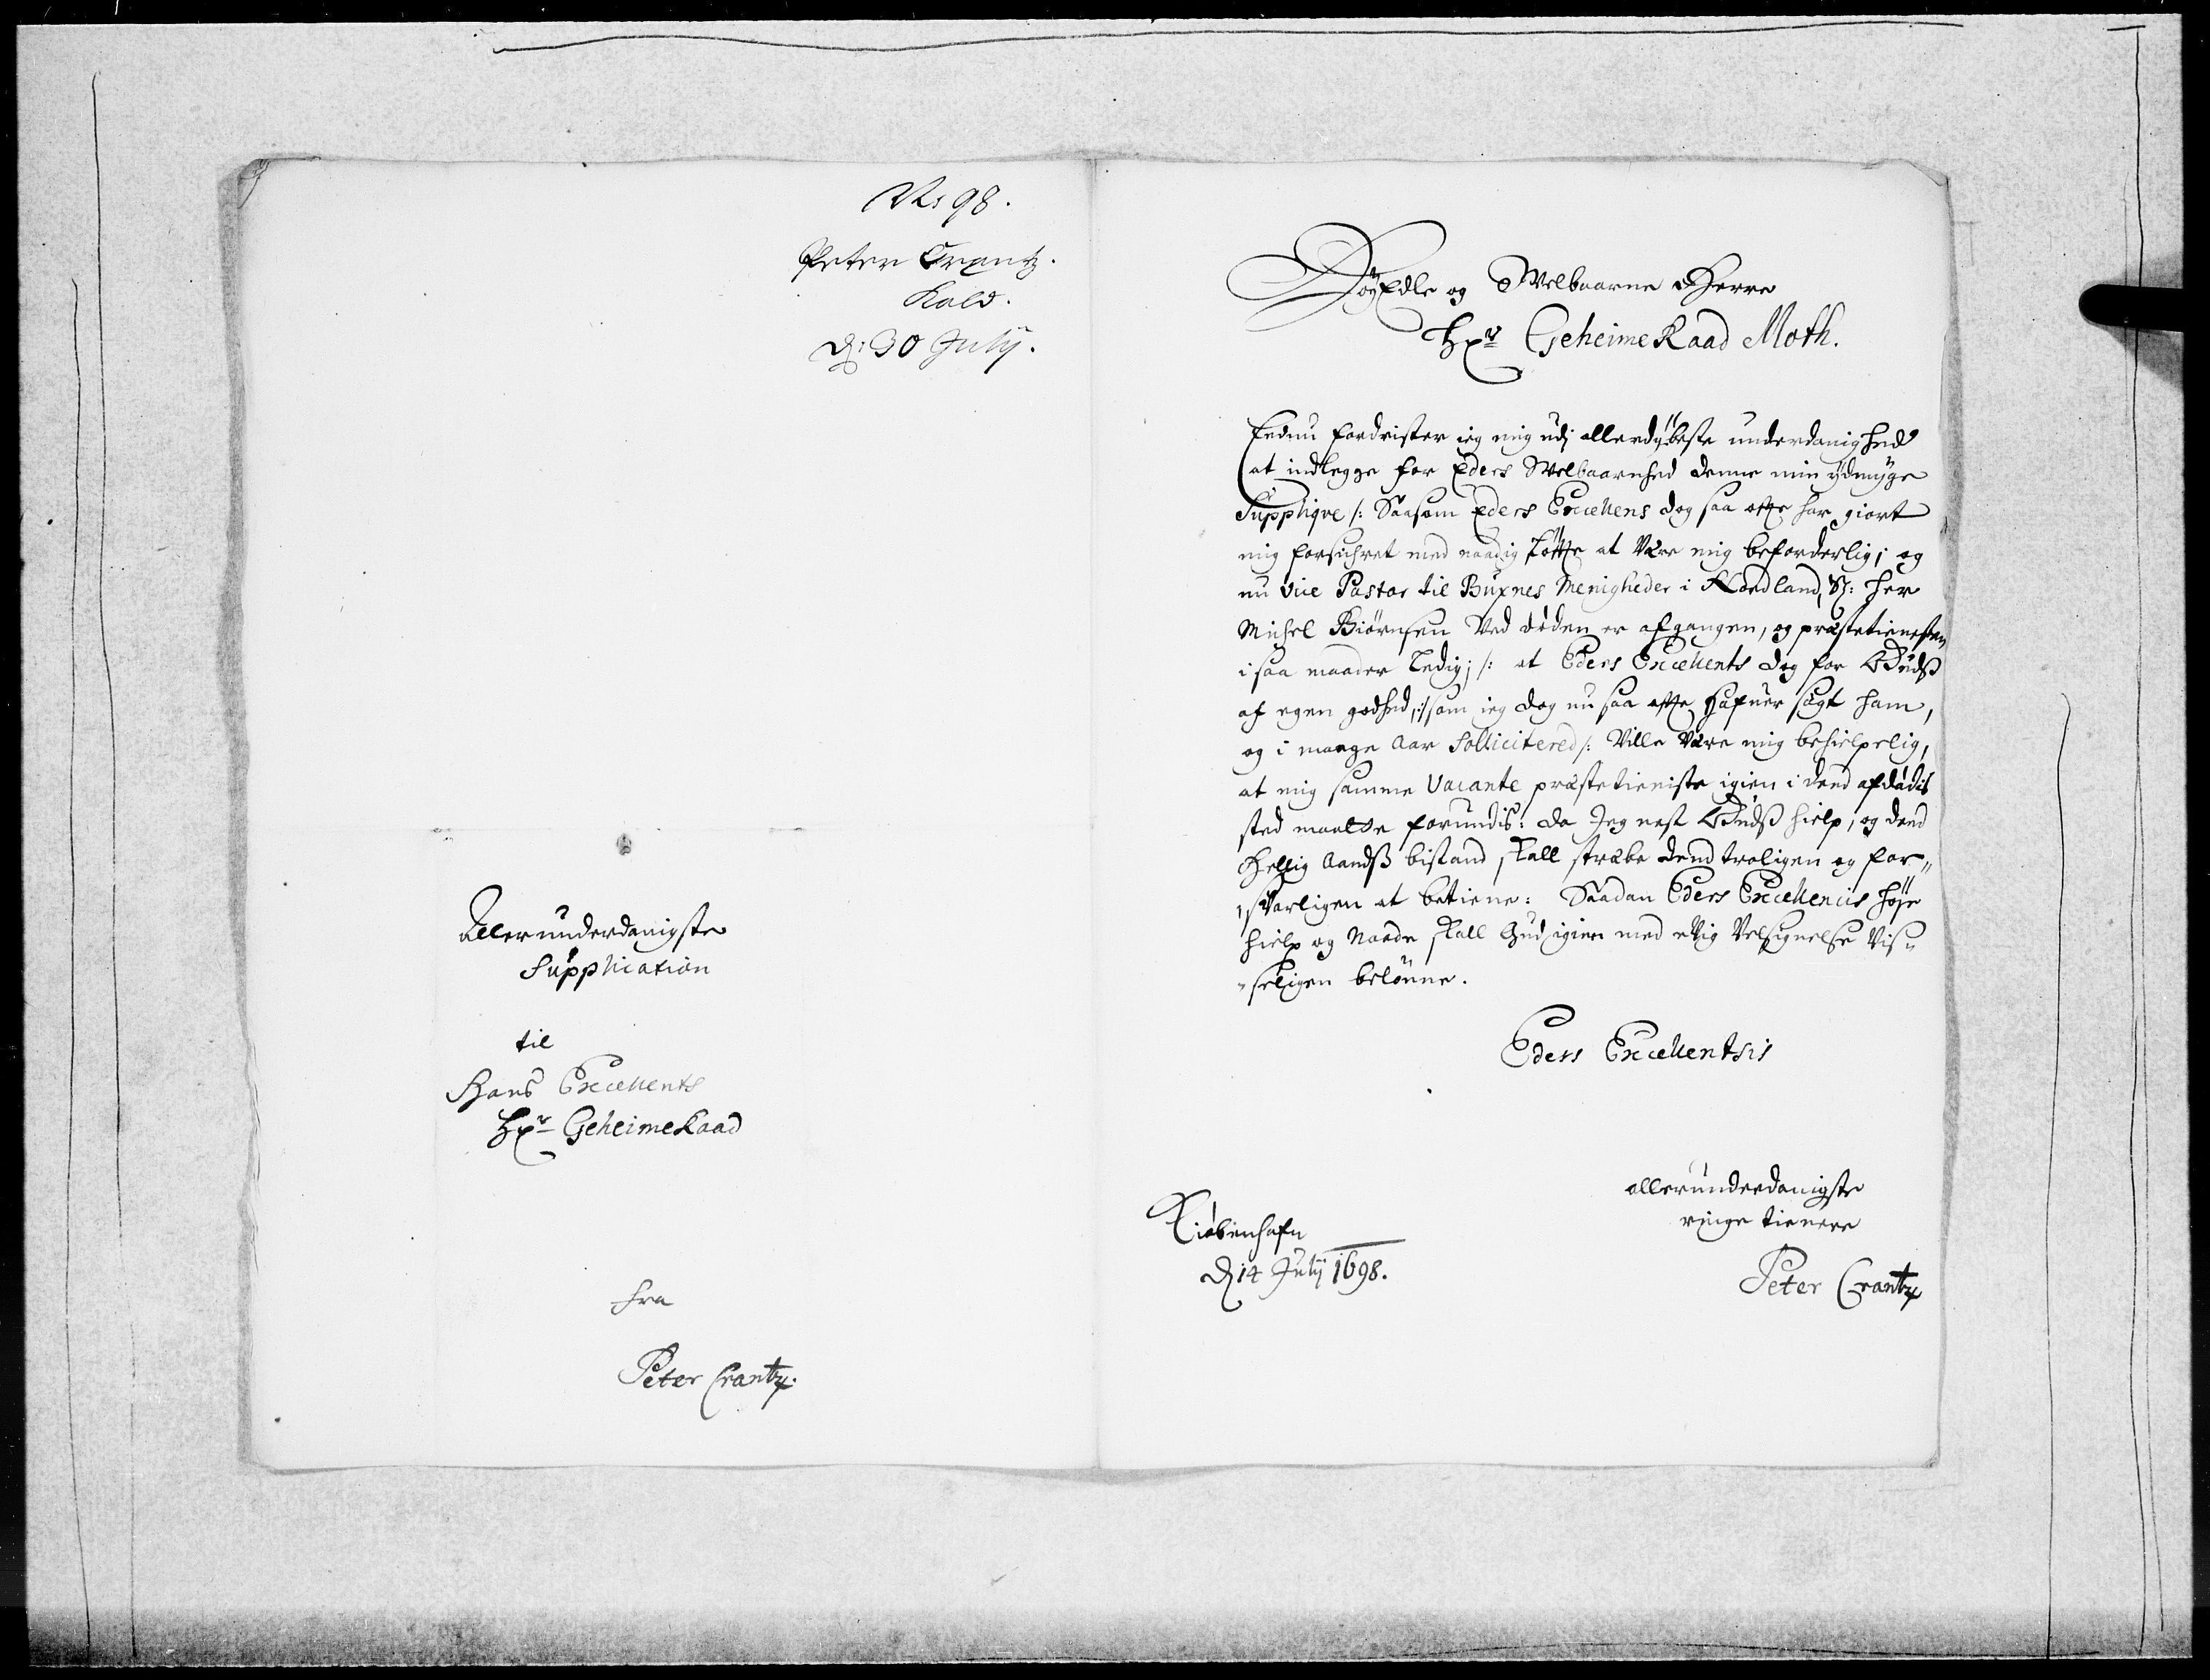 No 98.
Peter Crantz.
Kald.
d: 30 July.
Allerunderdanigste
Supplication
til
Hans Excellents
Hr GeheimeRaad
fra
Peter Crantz.
HøyEdle og Welbaarne Herre
Hr GeheimeRaad Moth.
Endnu fordrister ieg mig udj allerdÿbeste underdanighed
at indlegge for Eders Welbaarnhed denne min ÿdmyge
Suppliqve /: Saasom Eders Excellens dog saa ofte har giort
mig forsichret med naadig løffte at være mig beforderlig; og
nu vice Pastor til Buxnes Menigheder i Nordland, S: her
Michel Biørnsen Ved døden er afgangen, og præstetienesten
i saa maader ledig; /: at Eders Excellents dog for Gudß
af egen godhed, :/ som ieg dog nu saa ofte hafuer søgt ham,
og i mange Aar Sollicitered /: Ville være mig behielpelig,
at mig samme Vacante præstetieniste igien i dend afdødis
sted maatte forundis: da Jeg nest Gudß hielp, og dend
Hellig Aandß bistand skall stræbe dend troligen og for„
„svarligen at betiene: Saadan Eders Excellencis høje
hielp og Naade skall Gud igien med eVig Velsignelse Vis„
„seligen belønne.
Eders Excellentsis
allerunderdanigste
ringe tienere
Peter Crantz
Kiøbenhafn
d 14 July 1698.